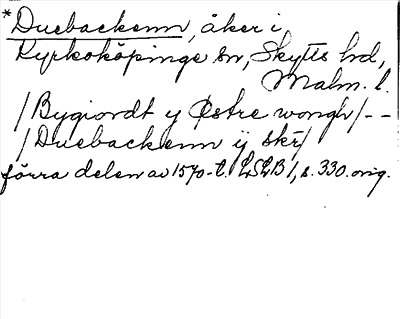 *Duebackenn, åker i
Kyrkoköpinge sn, Skytts hd,
Malm. l.
/Bygiordt y Østre wongh/--
/Duebackenn ij skr/
förra delen av 1570-t. LSLB 1, s. 330. orig.